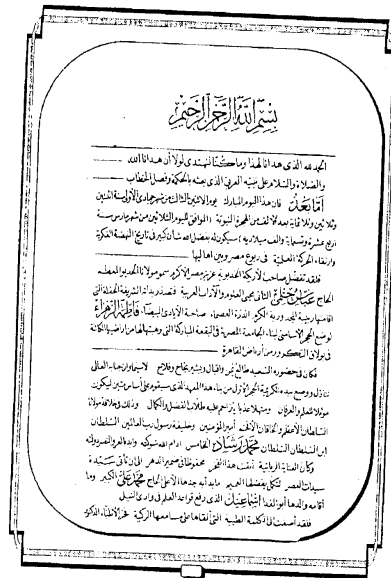 بسم الله الرحمن الرحيم
الحمد لله الذى هدانا لهذا وماكنا لنهتدى لولا أن هدانا الله
والصلاة والسلام على نبيه العربى الذى بعثه بالحكمة وفصل الخطاب
أما بعد فان هذا اليوم المبارك يوم الاثنين الثالث من شهر جمادى الأولى سنة اثنتين
وثلاثين وثلاثماية بعد الألف من الهجرة النبوية (الموافق لليوم الثلاثين من شهر مارس سنة
أربع عشرة وتسعماية وألف ميلادية) سيكون له بفضل الله شأن كبير فى تاريخ النهضة الفكرية
وارتقاء الحركة العلمية فى ربوع مصر وبين اهاليها
فلقد تفضل صاحب الأريكة الخديوية عزيز مصر الأكرم سمو مولانا الخديو المعظم
الحاج عباس حلمى الثانى محيى العلوم والآداب العربية فقصد بذاته الشريفة الحفلة التى
أقامتها ربة الجود الدرة العصماء صاحبة الأيادى البيضاء فاطمة الزهراء
لوضع الحجر الأساسى لبناء الجامعة المصرية فى البقعة المباركة التى وهبتها لها من أراضيها الكائنة
فى بولاق الدكرور من أرباض القاهرة
فكان فى حضوره السعيد طالع يمن واقبال وبشير نجاح وفلاح لاسيما وان جنابه العالى
تنازل ووضع بيده الكريمة الحجر الأول من بناء هذا المعهد الذى سيقوم على أساس متين ليكون
موئلا للعلم والعرفان ومنهلا عذبا يتزاحم عليه طلاب الفضل والكمال وذلك فى خلافة مولانا
السلطان الأعظم والخاقان الأفخم أمير المؤمنين وخليفة رسول رب العالمين السلطان
ابن السلطان السلطان محمد رشاد الخامس ادام الله شوكته وايده بالعز والنصر ودولته
وكأن العناية الربانية أبقت هذا الفخر محفوظا فى ضمير الدهر الى أن تأتى سيدة
سيدات العصر لتكمل بفضلها العميم مابدأ به جدها الأعلى الحاج محمد على الكبير وما
أقامه والدها أبو الفدا اسماعيل الذى رفع قواعد العلم فى وادى النيل
فلقد أصغت الى الكلمة الطيبة التى ألقاها على مسامعها الزكية فخر الأطباء الدكتور